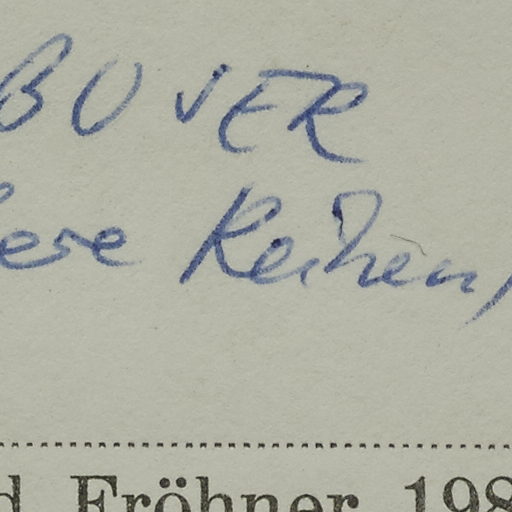 ere Reihen,
d Fröhner 198